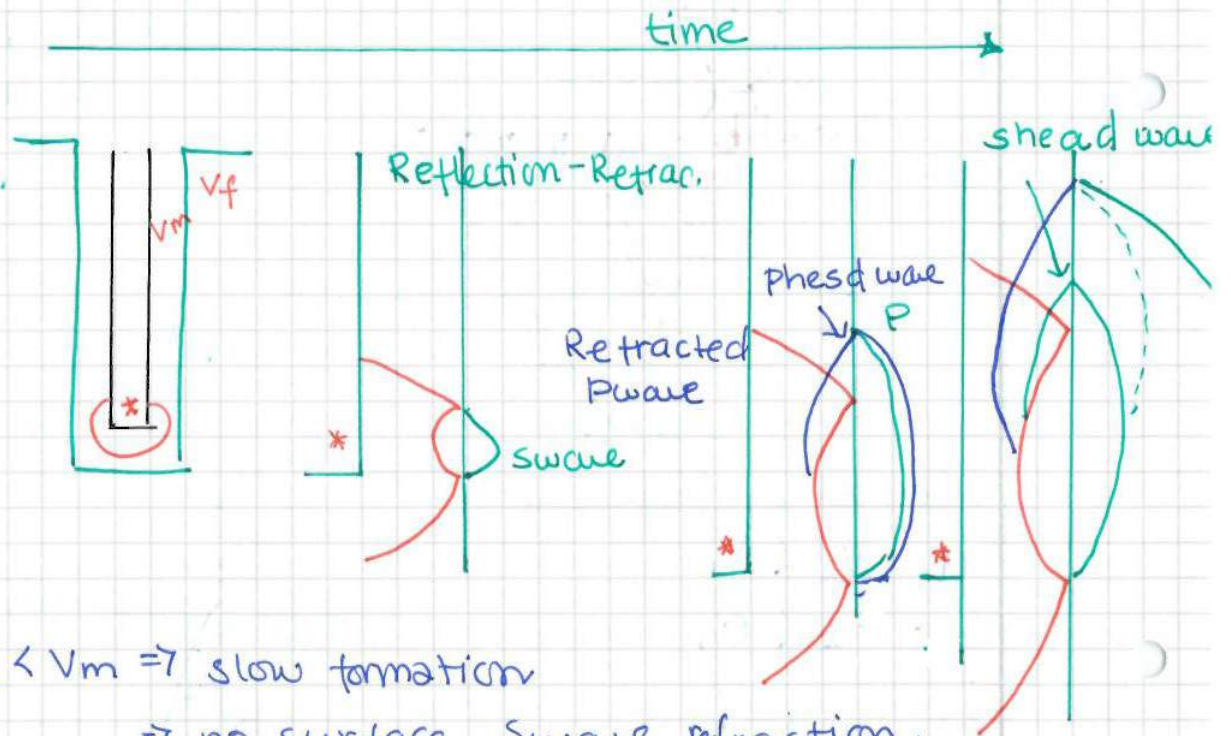 time
shead wave
Vf
Vm
Reflection-Refrac.
phead wave
P
Refracted
Pwave
swave
< Vm => slow formation
=> no surface Swave refraction.